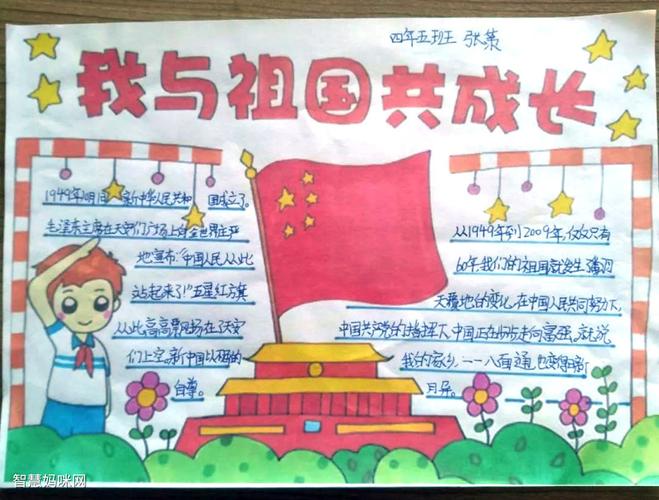 四年五班 张策
我与祖国共成长
1949年10月1日新中华人民共和国成立了。
毛泽东主席在天安门广场上向全世界庄严
地宣布:“中国人民从此
站起来了!”五星红旗
从此高高飘扬在了天安
门上空。新中国从
自尊。
从1949年到2009年,仅仅只有
60年,我们的祖国就发生翻
天覆地的变化,在中国人民共同努力下,
中国共产党的指挥下,中国正在步步走向富强,就说
我的家乡——八面通,也变得日新
月异。
智慧妈咪网